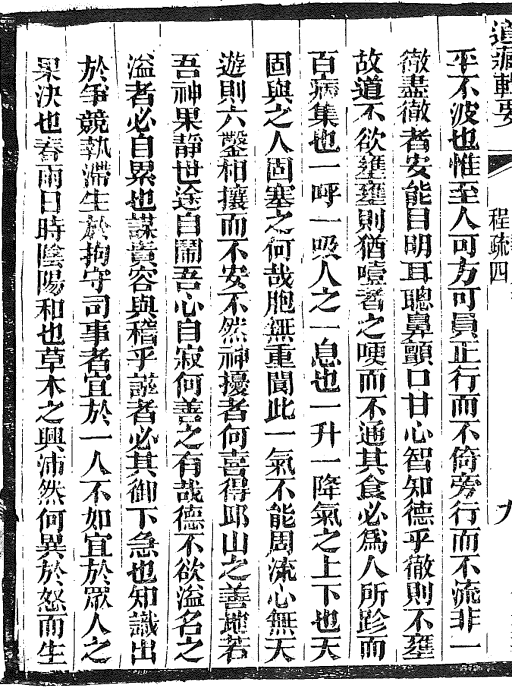 道藏輯要
程疏四
九
平不波也惟至人可方可員正行而不倚旁行而不流非一
徹盡徹者安能目明耳聰鼻顫口甘心智知德乎徹則不壅
故道不欲壅壅則猶噎者之哽而不通其食必為人所跈而
百病集也一呼一吸人之一息也一升一降氣之上下也天
固與之人固塞之何哉胞無重閬此一氣不能周流心無天
遊則六鑿相攘而不安不然神擾者何喜得邱山之善地若
吾神果靜世途自鬧吾心自寂何善之有哉德不欲溢名之
溢者必自累也謀貴容與稽乎誸者必其御下急也知識出
於爭競執滯生於拘守司事者宜於一人不如宜於眾人之
果決也春雨日時陰陽和也草木之興沛然何異於怒而生